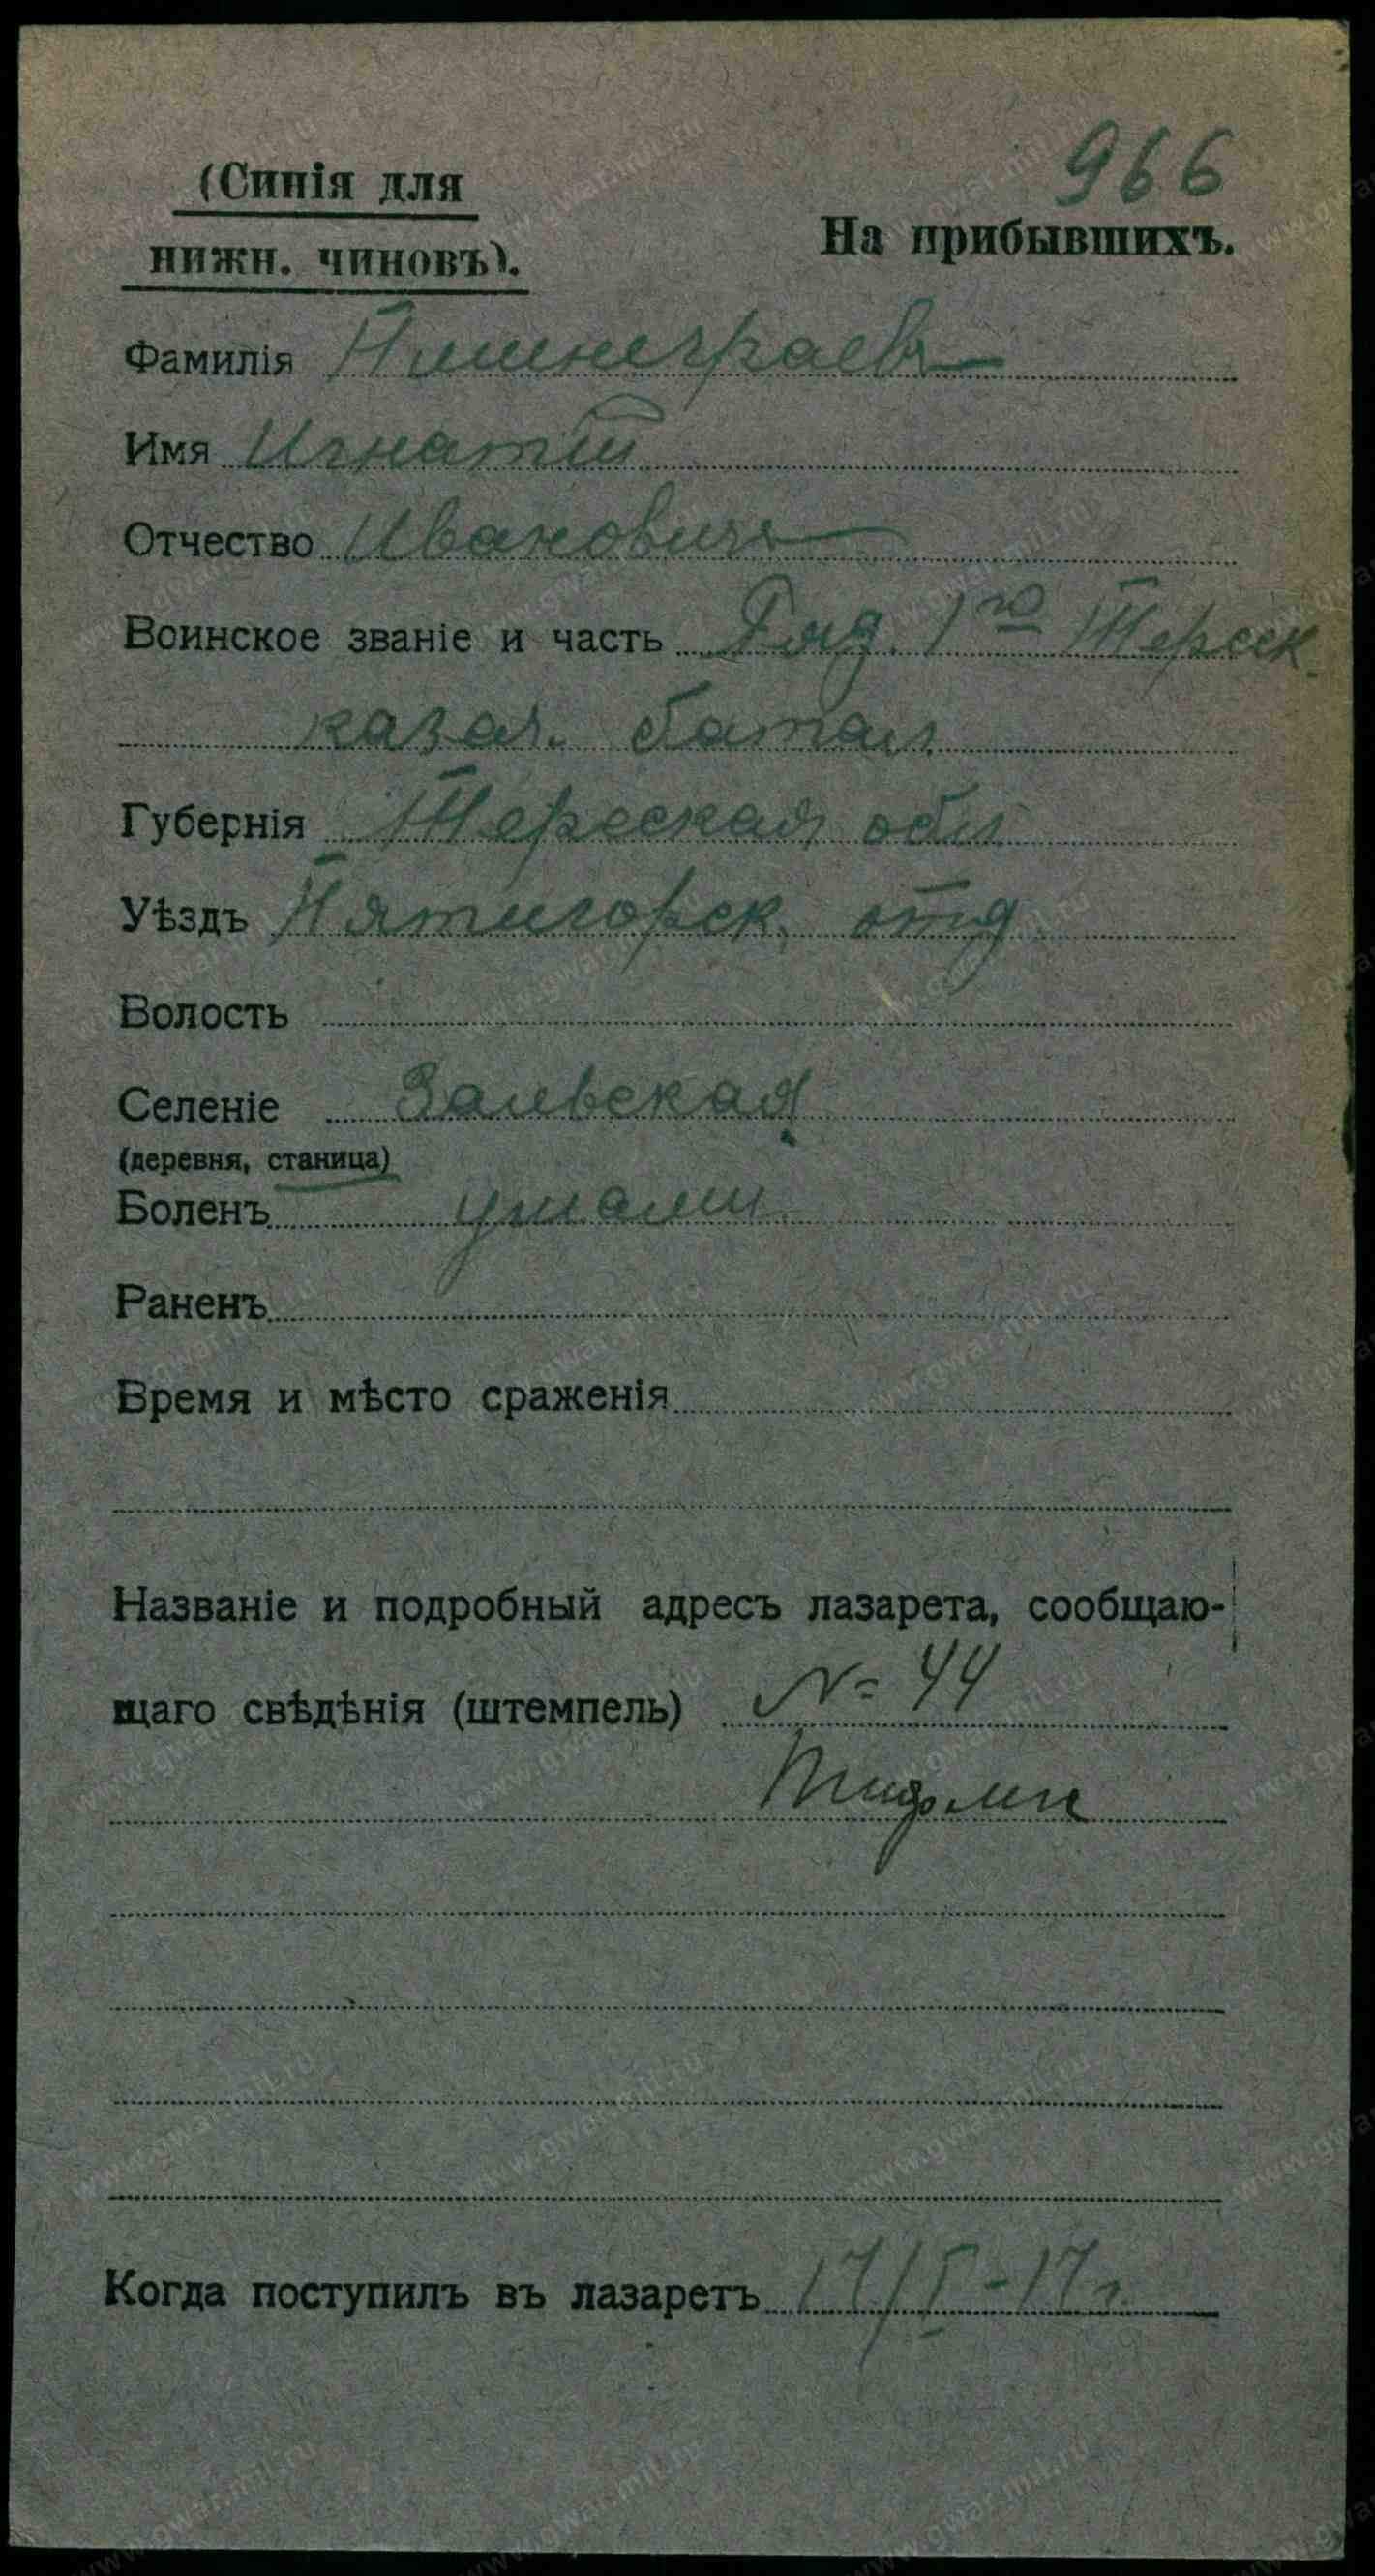 966
(Синія для
нижн. чиновъ).
На прибывшихъ.
Фамилія
Имя Игнатій
Отчество Ивановичъ
Воинское званіе и часть Ряд. 1го Терск.
казач. батал
Губернія Терская обл
Уѣздъ Пятигорск. отд
Волость
Селеніе
(деревня, станица)
Боленъ ушами
Раненъ
Время и мѣсто сраженія
Названіе и подробный адресъ лазарета, сообщаю-
щаго свѣдѣнія (штемпель) № 44
Тифлис
Когда поступилъ въ лазаретъ 17/I-17г.